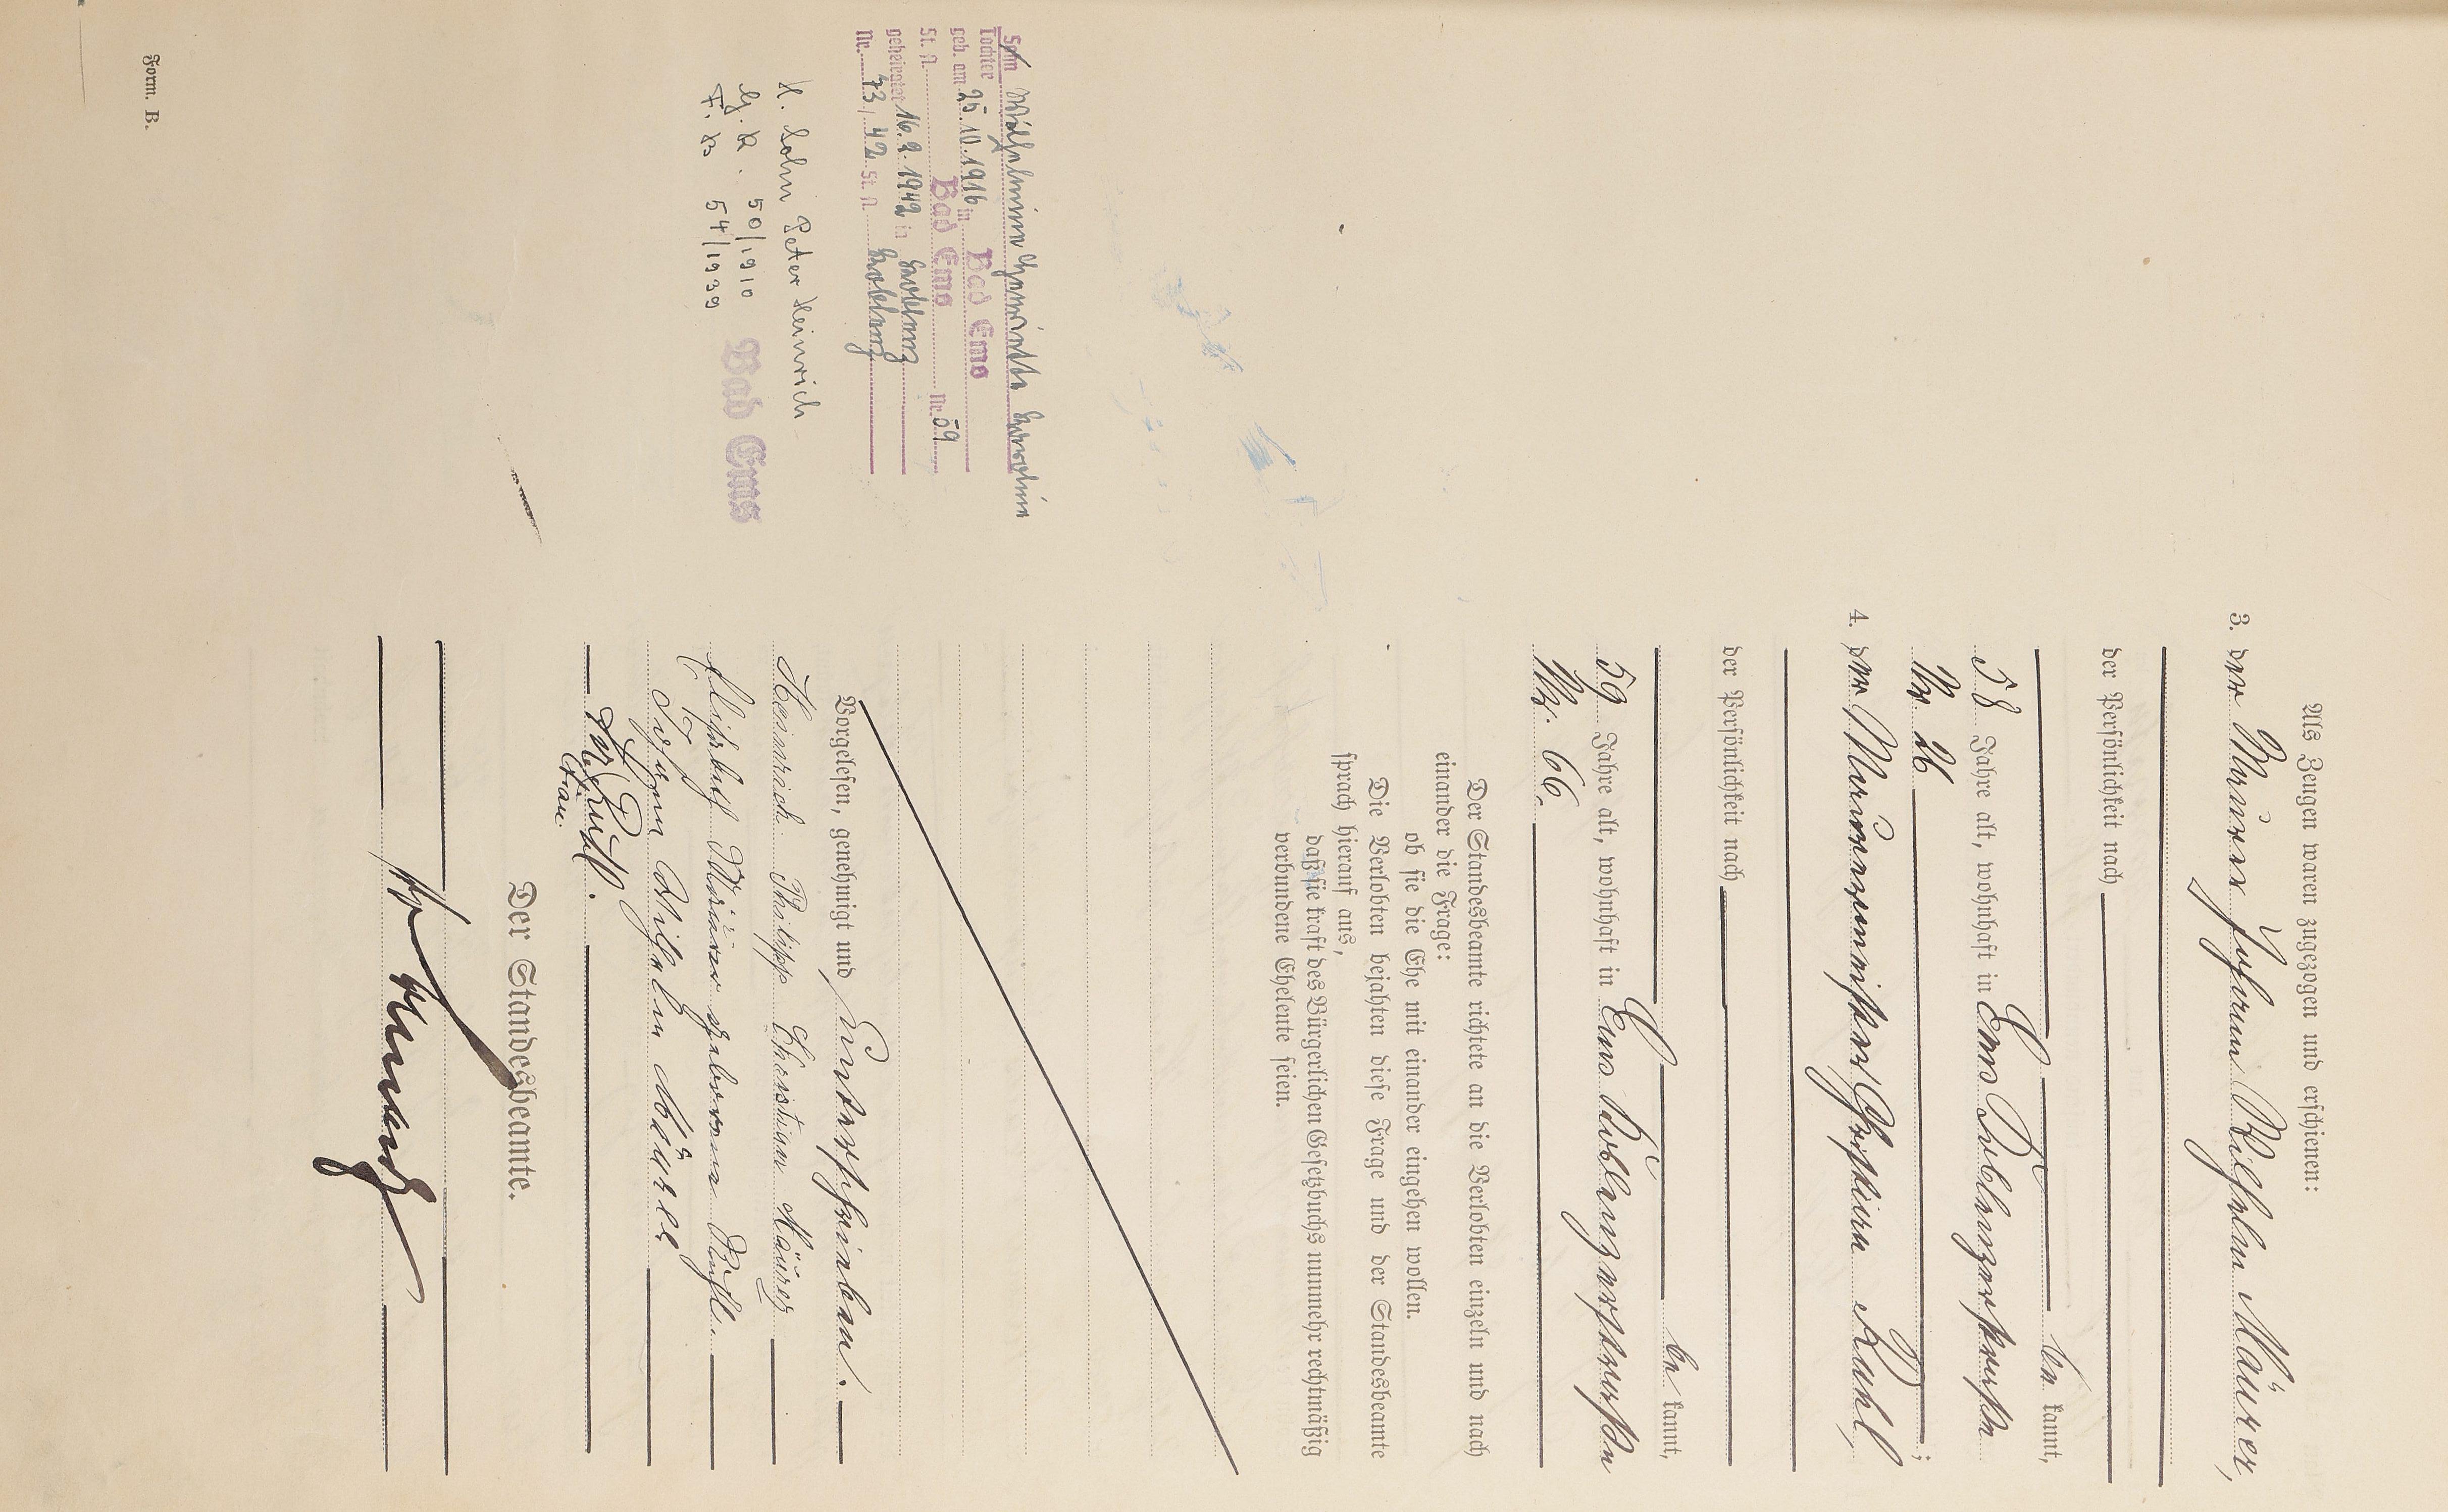 Als Zeugen waren zugezogen und erschienen:
3. der Maurer Johann Wilhelm Mäurer,
der Persönlichkeit nach
be kannt,
58 Jahre alt, wohnhaft in Ems Koblenzerstraße
Nr. 26 ;
4. der Maurermeister Christian Ruhl,
der Persönlichkeit nach
be kannt,
59 Jahre alt, wohnhaft in Ems Koblenzerstraße
Nr. 66.
Der Standesbeamte richtete an die Verlobten einzeln und nach
einander die Frage:
ob sie die Ehe mit einander eingehen wollen.
Die Verlobten bejahten diese Frage und der Standesbeamte
sprach hierauf aus,
daß sie kraft des Bürgerlichen Gesetzbuchs nunmehr rechtmäßig
verbundene Eheleute seien.
Vorgelesen, genehmigt und unterschrieben.
Heinrich Philipp Christian Mäurer
Elisabeth Mäurer geborene Ruhl.
Johann Wilhelm Mäurer
Ruhl.
Der Standesbeamte.
Sohn Wilhelmine Henriette
Tochter
geb. am 25.10.1916 in Bad Ems
St. A. Bad Ems Nr. 59
geheiratet 16.2.1942 in Koblenz
Nr. 73/42 St. A. Koblenz
1. Sohn Peter Heinrich
G. R. 50/1910
F. B. 54/1939 Bad Ems
Form. B.